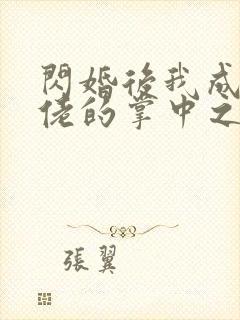 閃婚後我成
佬的掌中之
張翼